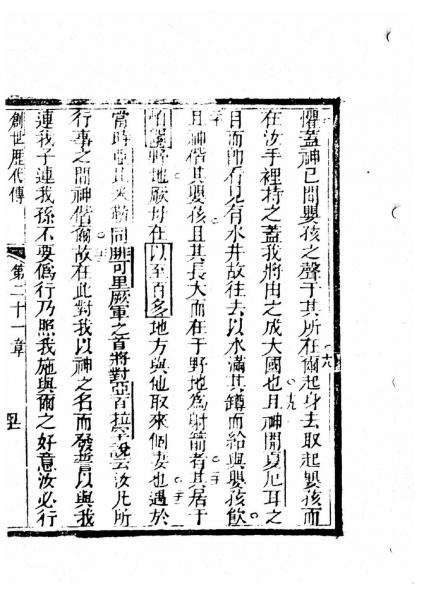 懼蓋神已聞嬰孩之聲于其所在爾起身去取起嬰孩而
在汝手裡持之蓋我將由之成大國也且神開夏厄耳之
目而即有見有水井故往去以水滿其罇而給與嬰孩飲
且神偕其嬰孩且其長大而在于野地為射箭者其居于
野地厥母在以至百多地方與他取來個妻也遇於
當時同腓可里厥軍之首將對亞百拉罕說云汝凡所
行事之間神偕爾故在此對我以神之名而發誓以與我
連我子連我孫不要偽行乃照我施與爾之好意汝必行
創世歷代傳
第二十一章